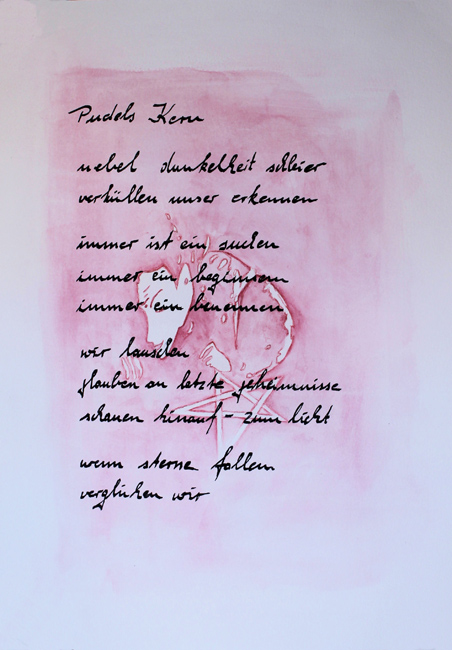 Pudels Kern
nebel dunkelheit schleier
verhüllen unser erkennen
immer ist ein suchen
immer ein beginnen
immer ein benennen
wir lauschen
glauben an letzte geheimnisse
schauen hinauf - zum licht
wenn sterne fallen
verglühen wir